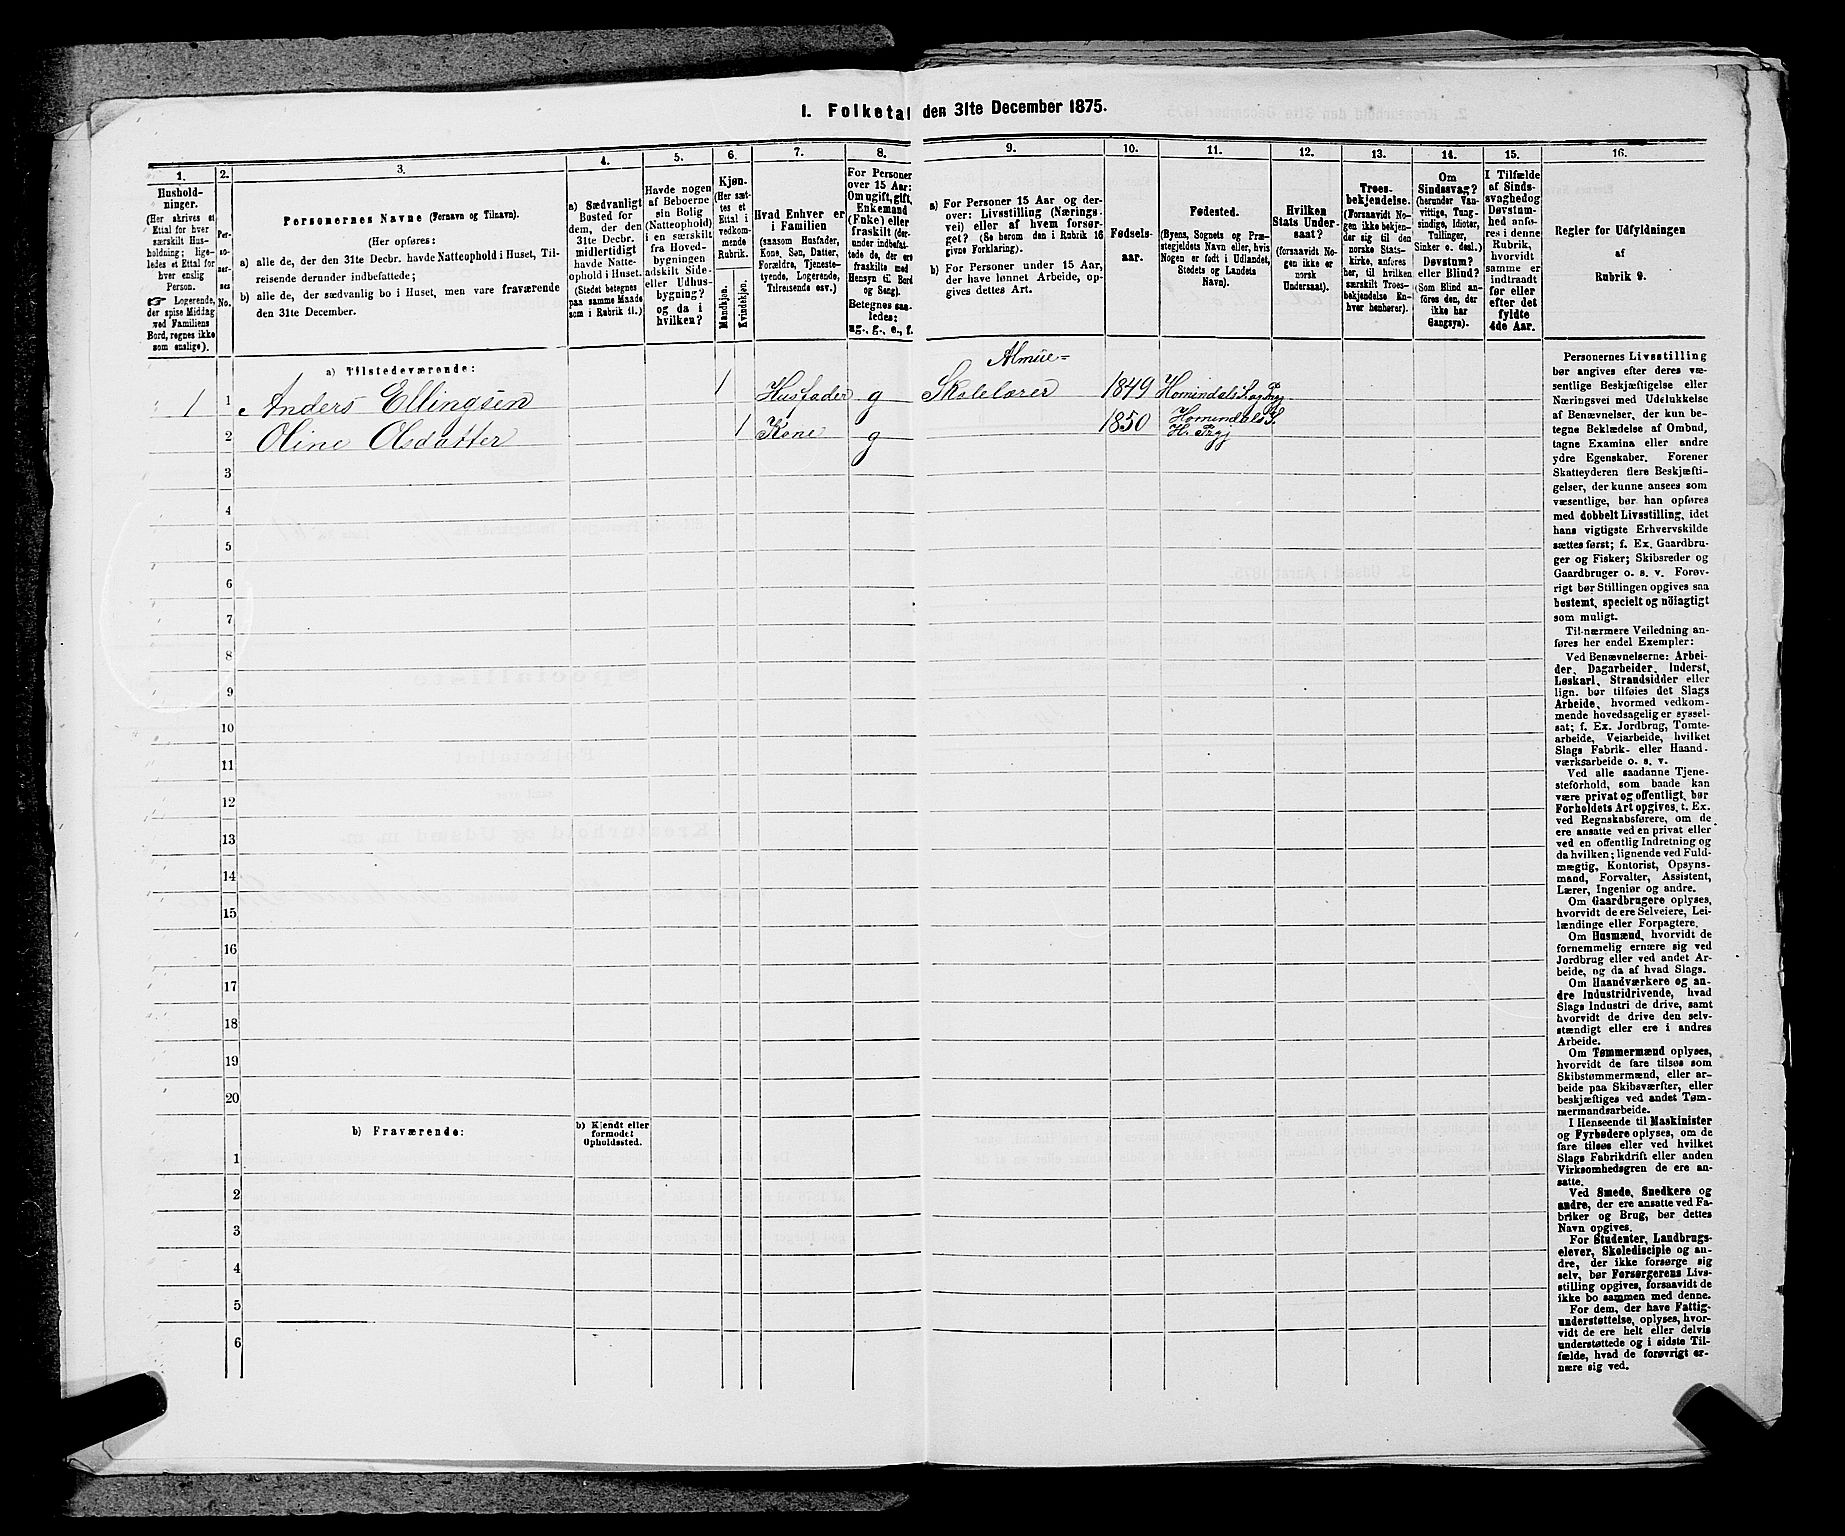 I. Folketal den 31te December 1875.
1. 2. 3. 4. 5. 6. 7. 8. 9. 10. 11. 12. 13. 14. 15. 16.
Hushold-
ninger.
(Her skrives et
Ettal for hver
særskilt Hus-
holdning; lige-
ledes et Ettal for
hver enslig
Person.
☞ Logerende,
der spise Middag
ved Familiens
Bord, regnes ikke
som enslige).
Per-
so-
ner-
nes
No.
Personernes Navne (Fornavn og Tilnavn).
(Her opføres:
a) alle de, der den 31te Decbr. havde Natteophold i Huset, Til-
reisende derunder indbefattede;
b) alle de, der sædvanlig bo i Huset, men vare fraværende
den 31te December.
a) Sædvanligt
Bosted for
dem, der den
31te Decbr.
midlertidigt
havde Natte-
ophold i Huset.
(Stedet betegnes
paa samme Maade
som i Rubrik 11.)
Havde nogen
af Beboerne
sin Bolig
(Natteophold)
i en særskilt
fra Hoved-
bygningen
adskilt Side-
eller Udhus-
bygning?
og da i
hvilken?
Kjøn.
(Her sæt-
tes et
Ettal i
vedkom-
mende
Rubrik.
Mandkjøn.
Kvindekjøn.
Hvad Enhver er
i Familien
(saasom Husfader,
Kone, Søn, Datter,
Forældre, Tjeneste-
tyende, Logerende,
Tilreisende osv.)
For Personer
over 15 Aar:
Om ugift, gift,
Enkemand
(Enke) eller
fraskilt (der-
under indbefat-
tede de, der ere
fraskilte med
Hensyn til Bord
og Seng).
Betegnes saa-
ledes:
ug., g., e., f.
a) For Personer 15 Aar og der-
over: Livsstilling (Nærings-
vei) eller af hvem forsør-
get? (Se herom den i Rubrik 16
givne Forklaring).
b) For Personer under 15 Aar,
der have lønnet Arbeide, op-
gives dettes Art.
Fødsels-
aar.
Fødested.
(Byens, Sognets og Præ-
stegjeldets Navn eller, hvis
Nogen er født i Udlandet,
Stedets og Landets
Navn).
Hvilken
Stats Under-
saat?
(forsaavidt No-
gen ikke er
norsk
Undersaat).
Troes-
bekjendelse.
(Forsaavidt No-
gen ikke bekjen-
der sig til den
norske Stats-
kirke, anføres
her, til hvilken
særskilt Troes-
bekjendelse En-
hver henhører).
Om
Sindssvag?
(herunder Van-
vittige, Tung-
sindige, Idioter,
Tullinger,
Sinker o. desl.)
Døvstum?
eller Blind?
(Som Blind an-
føres den, der
ikke har
Gangsyn).
I Tilfælde
af Sinds-
svaghed og
Døvstum-
hed anfø-
res i denne
Rubrik,
hvorvidt
samme er
indtraadt
før eller
efter det
fyldte
4de Aar.
Regler for Udfyldningen
af
Rubrik 9.
a) Tilstedeværende:
Almüe=
1 1 Anders Ellingsen 1 Husfader g Skolelærer 1849 Homindals
2 Oline Olsdatter 1 Kone g 1850 Homindals S.
H. Prgj
3
4
5
6
7
8
9
10
11
12
13
14
15
16
17
18
19
20
b) Fraværende:
b) Kjendt eller
formodet
Opholdssted.
1
2
3
4
5
6
Personernes Livsstilling
bør angives efter deres væ-
sentlige Beskjæftigelse eller
Næringsvei med Udelukkelse
af Benævnelser, der kun be-
tegne Beklædelse af Ombud,
tagne Examina eller andre
ydre Egenskaber. Forener
Skatteyderen flere Beskjæfti-
gelser, der kunne ansees som
væsentlige, bør han opføres
med dobbelt Livsstilling, idet
hans vigtigste Erhvervskilde
sættes først; f. Ex. Gaardbru-
ger og Fisker; Skibsreder og
Gaardbruger o. s. v. Forøv-
rigt bør Stillingen opgives saa
bestemt, specielt og nöiagtigt
som muligt.
Til nærmere Veiledning an-
føres her endel Exempler:
Ved Benævnelserne: Arbei-
der, Dagarbeider, Inderst,
Løskarl, Strandsidder eller
lign. bør tilføies det Slags
Arbeide, hvormed vedkom-
mende hovedsagelig er syssel-
sat; f. Ex. Jordbrug, Tomte-
arbeide, Veiarbeide, hvilket
Slags Fabrik- eller Haand-
værksarbeide o. s. v.
Ved alle saadanne Tjene-
steforhold, som baade kan
være privat og offentligt, bør
Forholdets Art opgives, t. Ex.
ved Regnskabsførere, om de
ere ansatte ved en privat eller
ved en offentlig Indretning og
da hvilken; lignende ved Fuld-
mægtig, Kontorist, Opsyns-
mand, Forvalter, Assistent,
Lærer, Ingeniør og andre.
Om Gaardbrugere oplyses,
hvorvidt de ere Selveiere, Lei-
lændinge eller Forpagtere.
Om Husmænd, hvorvidt de
fornemmelig ernære sig ved
Jordbrug eller ved andet Ar-
beide, og da af hvad Slags.
Om Haandværkere og an-
dre Industridrivende, hvad
Slags Industri de drive, samt
hvorvidt de drive den selv-
stændigt eller ere i andres
Arbeide.
Om Tømmermænd oplyses,
hvorvidt de fare tilsøs som
Skibstømmermænd, eller ar-
beide paa Skibsværfter, eller
beskjæftiges ved andet Tøm-
mermandsarbeide.
I Henseende til Maskinister
og Fyrbødere oplyses, om de
fare tilsøs eller ved hvilket
Slags Fabrikdrift eller anden
Virksomhedsgren de ere an-
satte.
Ved Smede, Snedkere og
andre, der ere ansatte ved Fa-
briker og Brug, bør dettes
Navn opgives.
For Studenter, Landbrugs-
elever, Skoledisciple og an-
dre, der ikke forsørge sig
selv, bør Forsørgerens Livs-
stilling opgives, forsaavidt de
ikke bo sammen med denne.
For dem, der have Fattig-
understøttelse, oplyses, hvor-
vidt de ere helt eller delvis
understøttede og i sidste Til-
fælde, hvad de forøvrigt er-
nære sig ved.